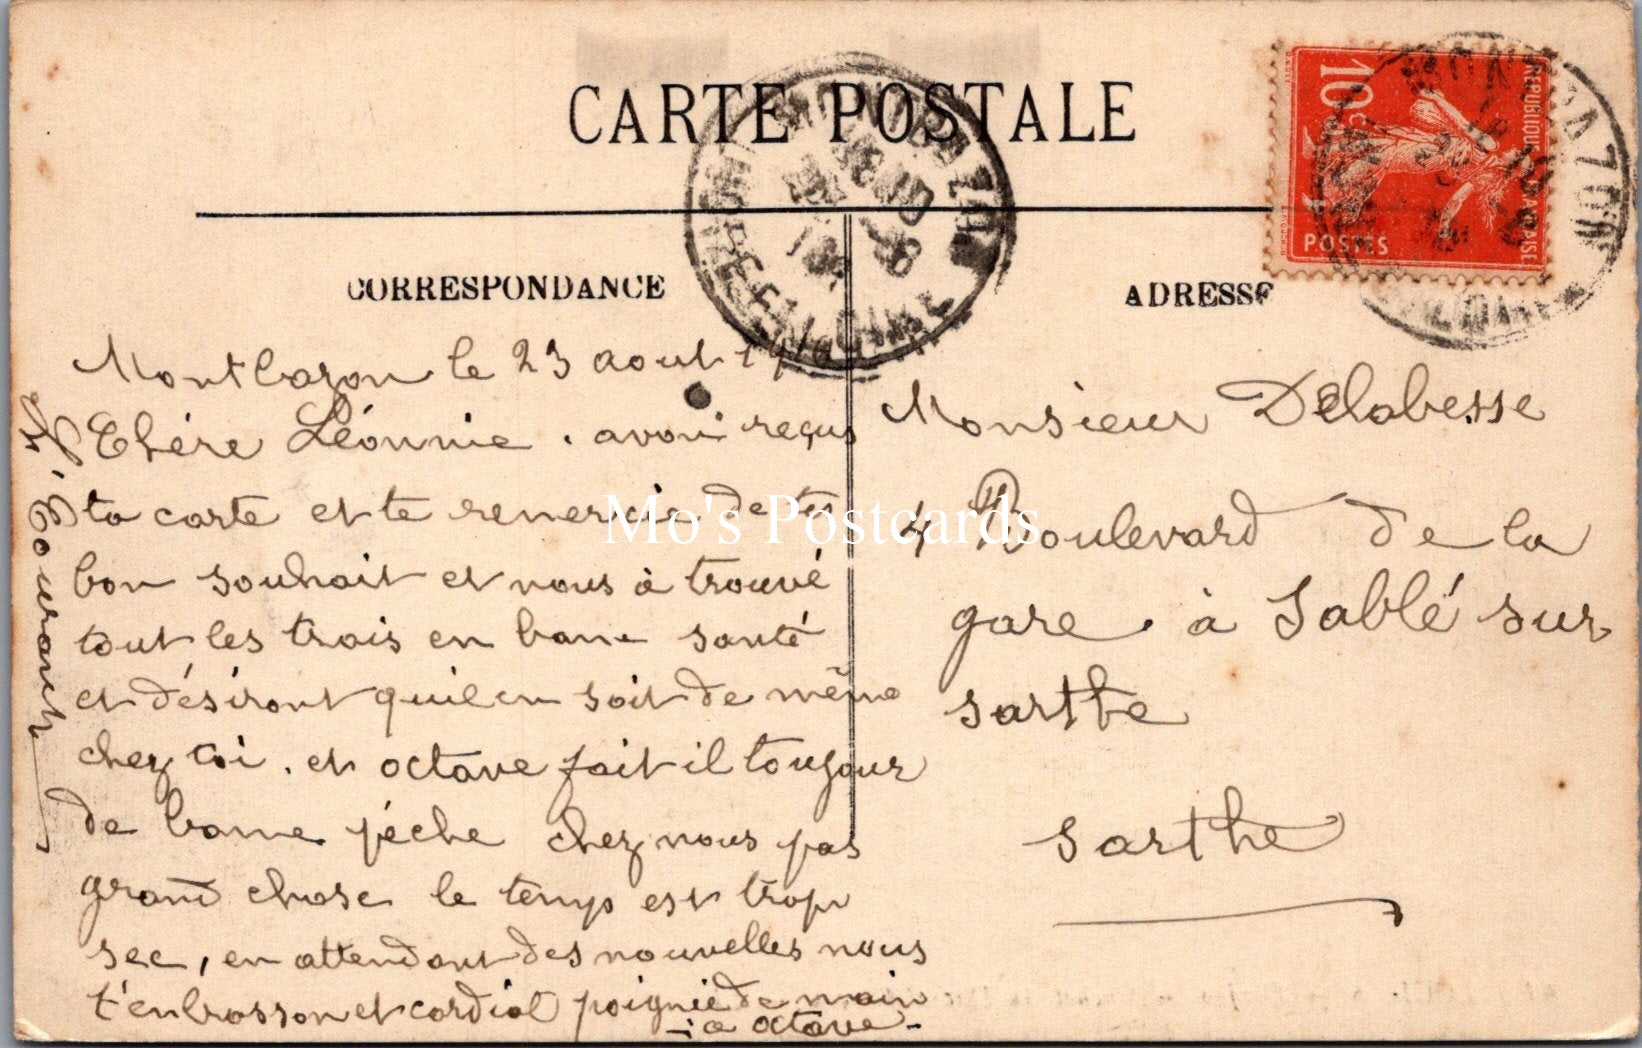 CARTE POSTALE
CORRESPONDANCE
ADRESSE
10 c
REPUBLIQUE FRANÇAISE
POSTES
MONTBAZON
INDRE-ET-LOIRE
Montbazon le 23 aout
Chére Léonnie. avon reçus
ta carte et te remercie de tes
bon souhait et nous à trouvé
tout les trois en bonne santé
et désiront quil en soit de même
chez toi. et octave fait il toujour
de bonne pêche chez nous pas
grand chose le temps est trop
sec, en attendant des nouvelles nous
t'enbrasson et cordial poignié de main
- a octave -
Monsieur Delabesse
4 Boulevard de la
gare à Sablé sur
sarthe
sarthe
Mo's Postcards